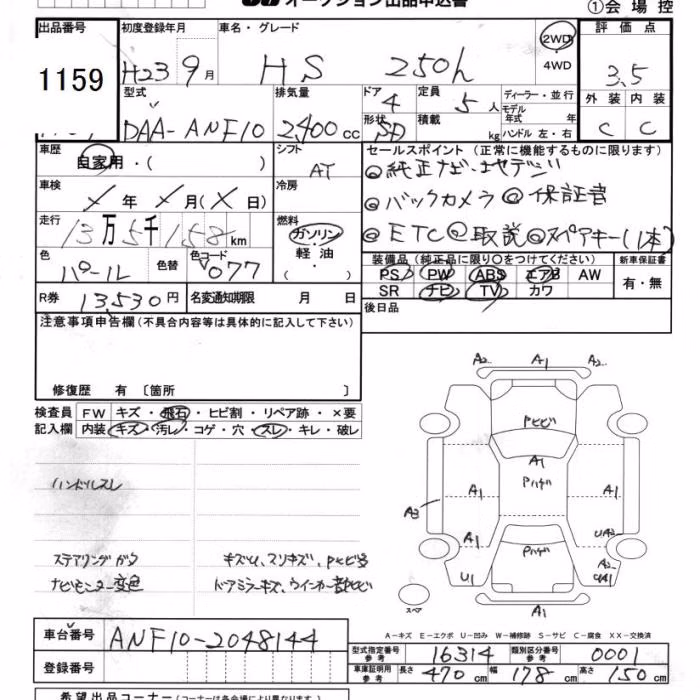 オークション出品申込書
①会場控
出品番号
1159
初度登録年月
H23 9月
車名・グレード
HS 250h
2WD
・
4WD
評価点
3.5
外装 内装
C C
型式
DAA-ANF10
排気量
2,400 cc
ドア
4
定員
5人
形状
SD
積載
kg
ディーラー・並行
モデル
年式 年
ハンドル 左・右
車歴
自家用・( )
シフト
AT
セールスポイント (正常に機能するものに限ります)
◎純正ナビ・地デジ
◎バックカメラ ◎保証書
◎ETC ◎取説 ◎スペアキー(1本)
車検
年 月( 日)
冷房
走行
13万5千158km
燃料
ガソリン
・
軽油
( )
色
パール
色替
色コード
077
装備品 (純正品に限り○をつけてください)
PS PW ABS エアB AW
SR ナビ TV カワ
新車保証書
有・無
R券 13,530円
名変通知期限 月 日
後日品
注意事項申告欄(不具合内容等は具体的に記入して下さい)
修復歴 有 〔箇所 〕
検査員
記入欄
FW キズ・飛石・ヒビ割・リペア跡・×要
内装 キズ・汚レ・コゲ・穴・スレ・キレ・破レ
ハンドルスレ
ステアリングガタ
ナビモニター変色
キズU、スリキズ、PヒビU
ドアミラーキズ、ウインカー部ヒビ
A2 A1 A2
Pヒビ
A1
A1 Pハゲ A1
A3
A1 UA2
Pハゲ
A2
U1 UA1
A1
スペア
A-キズ E-エクボ U-凹み W-補修跡 S-サビ C-腐食 XX-交換済
車台番号
ANF10-2048144
登録番号
型式指定番号
参考
16314
類別区分番号
参考
0001
車庫証明用
参考
長さ 470cm 幅 178cm 高さ 150cm
希望出品コーナー(コーナーは各会場により異なります。)